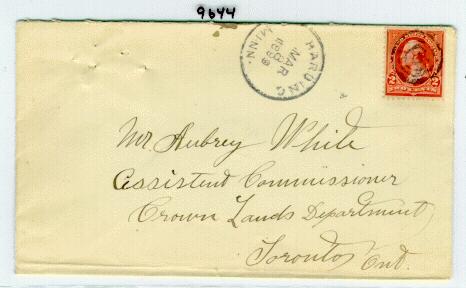 9644
HARDING
MAR
8
1898
MINN.
2 2
Mr. Aubrey White
Assistent Commissioner
Crown Lands Department
Toronto Ont.